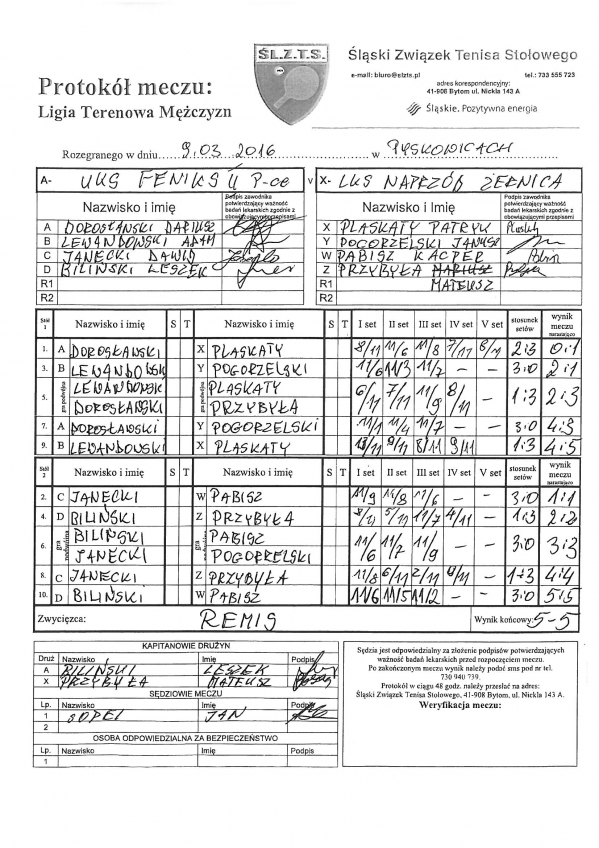 ŚL.Z.T.S.
Śląski Związek Tenisa Stołowego
e-mail: biuro@slzts.pl tel.: 733 555 723
adres korespondencyjny:
41-908 Bytom ul. Nickla 143 A
Śląskie. Pozytywna energia
Protokół meczu:
Ligia Terenowa Mężczyzn
Rozegranego w dniu 9.03.2016 w PYSKOWICACH
A- UKS FENIKS II P-ce V X- LKS NAPRZÓD ŻERNICA
Nazwisko i Imię Podpis zawodnika potwierdzający ważność badań lekarskich zgodnie z obowiązującymi przepisami Nazwisko i Imię Podpis zawodnika potwierdzający ważność badań lekarskich zgodnie z obowiązującymi przepisami
A DOROSŁAŃSKI DARIUSZ X PLASKATY PATRYK
B LEWANDOWSKI ADAM Y POGORZELSKI JANUSZ
C JANECKI DAWID W PABISZ KACPER
D BILIŃSKI LESZEK Z PRZYBYŁA MARIUSZ
R1 R1 MATEUSZ
R2 R2
Stół 1 Nazwisko i imię S T Nazwisko i imię S T I set II set III set IV set V set stosunek setów wynik meczu narastająco
1. A DOROSŁAŃSKI X PLASKATY 8/11 11/6 11/8 7/11 6/11 2:3 0:1
3. B LEWANDOWSKI Y POGORZELSKI 11/6 11/3 11/2 - - 3:0 2:1
5. gra podwójna LEWANDOWSKI DOROSŁAŃSKI PLASKATY PRZYBYŁA 6/11 7/11 11/9 8/11 - 1:3 2:3
7. A DOROSŁAŃSKI Y POGORZELSKI 11/1 11/4 11/7 - - 3:0 4:3
9. B LEWANDOWSKI X PLASKATY 8/11 9/11 - 1:3 4:5
Stół 2 Nazwisko i imię S T Nazwisko i imię S T I set II set III set IV set V set stosunek setów wynik meczu narastająco
2. C JANECKI W PABISZ 11/9 11/6 - - 3:0 1:1
4. D BILIŃSKI Z PRZYBYŁA 5/11 11/7 4/11 - 1:3 2:2
6. gra podwójna BILIŃSKI JANECKI PABISZ POGORZELSKI 11/6 11/7 11/9 - - 3:0 3:3
8. C JANECKI Z PRZYBYŁA 11/8 6/11 2/11 - 1:3 4:4
10. D BILIŃSKI W PABISZ 11/6 11/5 11/2 - - 3:0 5:5
Zwycięzca: REMIS Wynik końcowy: 5-5
KAPITANOWIE DRUŻYN
Druż Nazwisko Imię Podpis
A BILIŃSKI LESZEK
X PRZYBYŁA MATEUSZ
SĘDZIOWIE MECZU
Lp. Nazwisko Imię Podpis
1 SOPEL JAN
2
OSOBA ODPOWIEDZIALNA ZA BEZPIECZEŃSTWO
Lp. Nazwisko Imię Podpis
1
Sędzia jest odpowiedzialny za złożenie podpisów potwierdzających
ważność badań lekarskich przed rozpoczęciem meczu.
Po zakończonym meczu wynik należy podać sms pod nr tel.
730 940 739.
Protokół w ciągu 48 godz. należy przesłać na adres:
Śląski Związek Tenisa Stołowego, 41-908 Bytom, ul. Nickla 143 A.
Weryfikacja meczu: